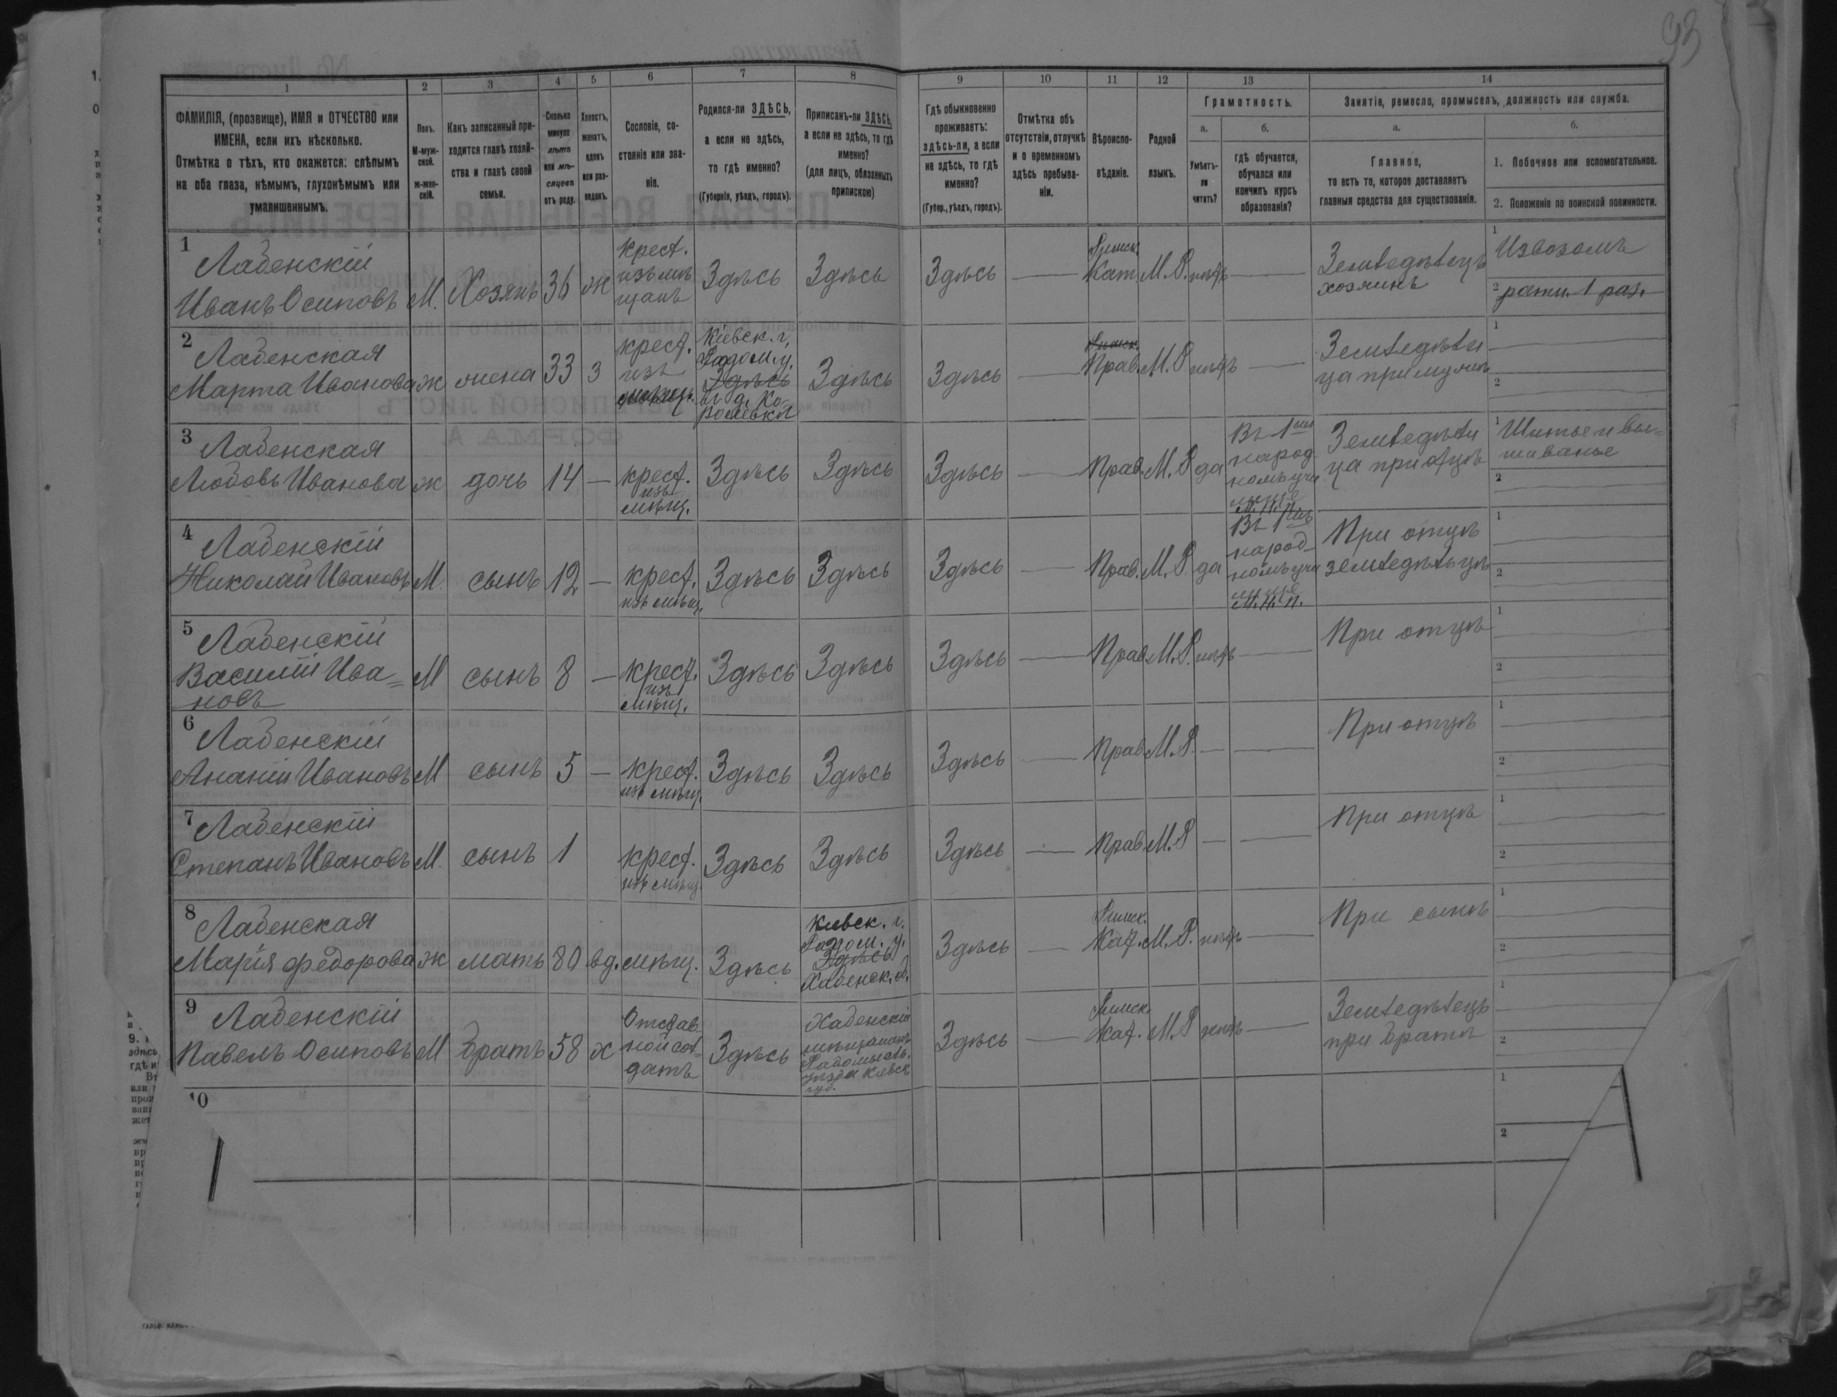 93
1 2 3 4 5 6 7 8 9 10 11 12 13 14
ФАМИЛІЯ, (прозвище), ИМЯ и ОТЧЕСТВО или
ИМЕНА, если ихъ нѣсколько.
Отмѣтка о тѣхъ, кто окажется: слѣпымъ
на оба глаза, нѣмымъ, глухонѣмымъ или
умалишеннымъ.
Полъ.
М-муж-
ской.
ж-жен-
скій.
Какъ записанный при-
ходится главѣ хозяй-
ства и главѣ своей
семьи.
Сколько
минуло
лѣтъ
или мѣ-
сяцевъ
отъ роду.
Холостъ,
женатъ,
вдовъ
или раз-
веденъ.
Сословіе, со-
стояніе или зва-
ніе.
Родился-ли ЗДѢСЬ,
а если не здѣсь,
то гдѣ именно?
(Губернія, уѣздъ, городъ).
Приписанъ-ли ЗДѢСЬ,
а если не здѣсь, то гдѣ
именно?
(для лицъ, обязанныхъ
припискою)
Гдѣ обыкновенно
проживаетъ:
здѣсь-ли, а если
не здѣсь, то гдѣ
именно?
(Губер., уѣздъ, городъ).
Отмѣтка объ
отсутствіи, отлучкѣ
и о временномъ
здѣсь пребыва-
ніи.
Вѣроиспо-
вѣданіе.
Родной
языкъ.
Грамотность.
а.
Умѣетъ-
ли
читать?
б.
гдѣ обучается,
обучался или
кончилъ курсъ
образованія?
Занятіе, ремесло, промыселъ, должность или служба.
а.
Главное,
то есть то, которое доставляетъ
главныя средства для существованія.
б.
1. Побочное или вспомогательное.
2. Положеніе по воинской повинности.
1
Ладенскій
Иванъ Осиповъ М. Хозяинъ 36 ж
крест.
изъ мѣ
щанъ
Здѣсь Здѣсь Здѣсь —
Римск.
Кат. М.Р. нѣтъ —
Земledѣлецъ
хозяинъ
1 Извозомъ
2 ратн. 1 раз.
2
Ладенская
Марта Иванова ж жена 33 З
крест.
изъ
мѣщ.
Кіевск. г,
Радом. у.
Здѣсь
въ д. Ко-
ролевкѣ
Здѣсь Здѣсь —
Римск.
Прав. М.Р нѣтъ —
Земледѣли
ца при мужѣ
1
2
3
Ладенская
Любовь Иванова ж дочь 14 —
крест.
изъ
мѣщ.
Здѣсь Здѣсь Здѣсь —
Прав. М.Р да
Въ 1мъ
народ
номъ учи
лищѣ
М.Н.П.
Земледѣли
ца при отцѣ
1 Шитье и вы-
шиванье
2
4
Ладенскій
Николай Ивановъ М. сынъ 12 —
крест.
изъ мѣщ.
Здѣсь Здѣсь Здѣсь —
Прав. М.Р. да
Въ 1мъ
народ-
номъ учи
лищѣ
М.Н.П.
При отцѣ
земледѣлецъ
1
2
5
Ладенскій
Василій Ива-
новъ
М сынъ 8 —
крест.
изъ
мѣщ.
Здѣсь Здѣсь Здѣсь —
Прав. М.Р. нѣтъ —
При отцѣ
1
2
6
Ладенскій
Ананій Ивановъ М сынъ 5 —
крест.
изъ мѣщ.
Здѣсь Здѣсь Здѣсь —
Прав. М.Р. — —
При отцѣ
1
2
7
Ладенскій
Степанъ Ивановъ М. сынъ 1
крест.
изъ мѣщ.
Здѣсь Здѣсь Здѣсь —
Прав. М.Р — —
При отцѣ
1
2
8
Ладенская
Марія Федорова ж мать 80 вд. мѣщ. Здѣсь
Киевск. г.
Радом. у.
Здѣсь
Хабенск. в.
Здѣсь —
Римск.
Кат. М.Р. нѣтъ —
При сынѣ
1
2
9
Ладенскій
Павелъ Осиповъ М братъ 58 х
Отстав
ной сол
датъ
Здѣсь
Хабенскій
мѣщанинъ
Радомысл.
уѣзда Киевск
губ.
Здѣсь —
Римск.
Кат. М.Р нѣтъ —
Земледѣлецъ
при братѣ
1
2
10
1
2